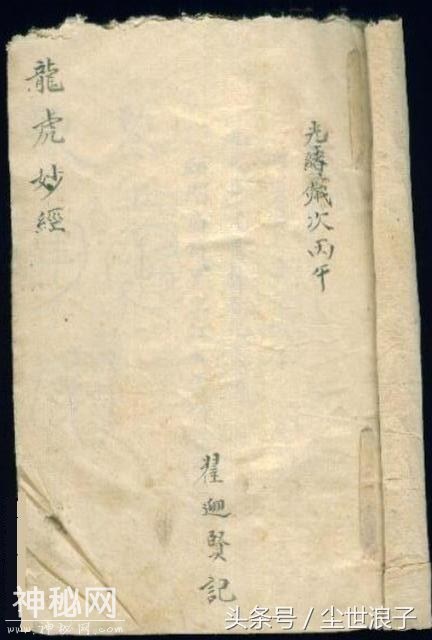 光緒歲次丙午
翟迴賢記
龍虎妙經
神秘网
头条号 / 尘世浪子